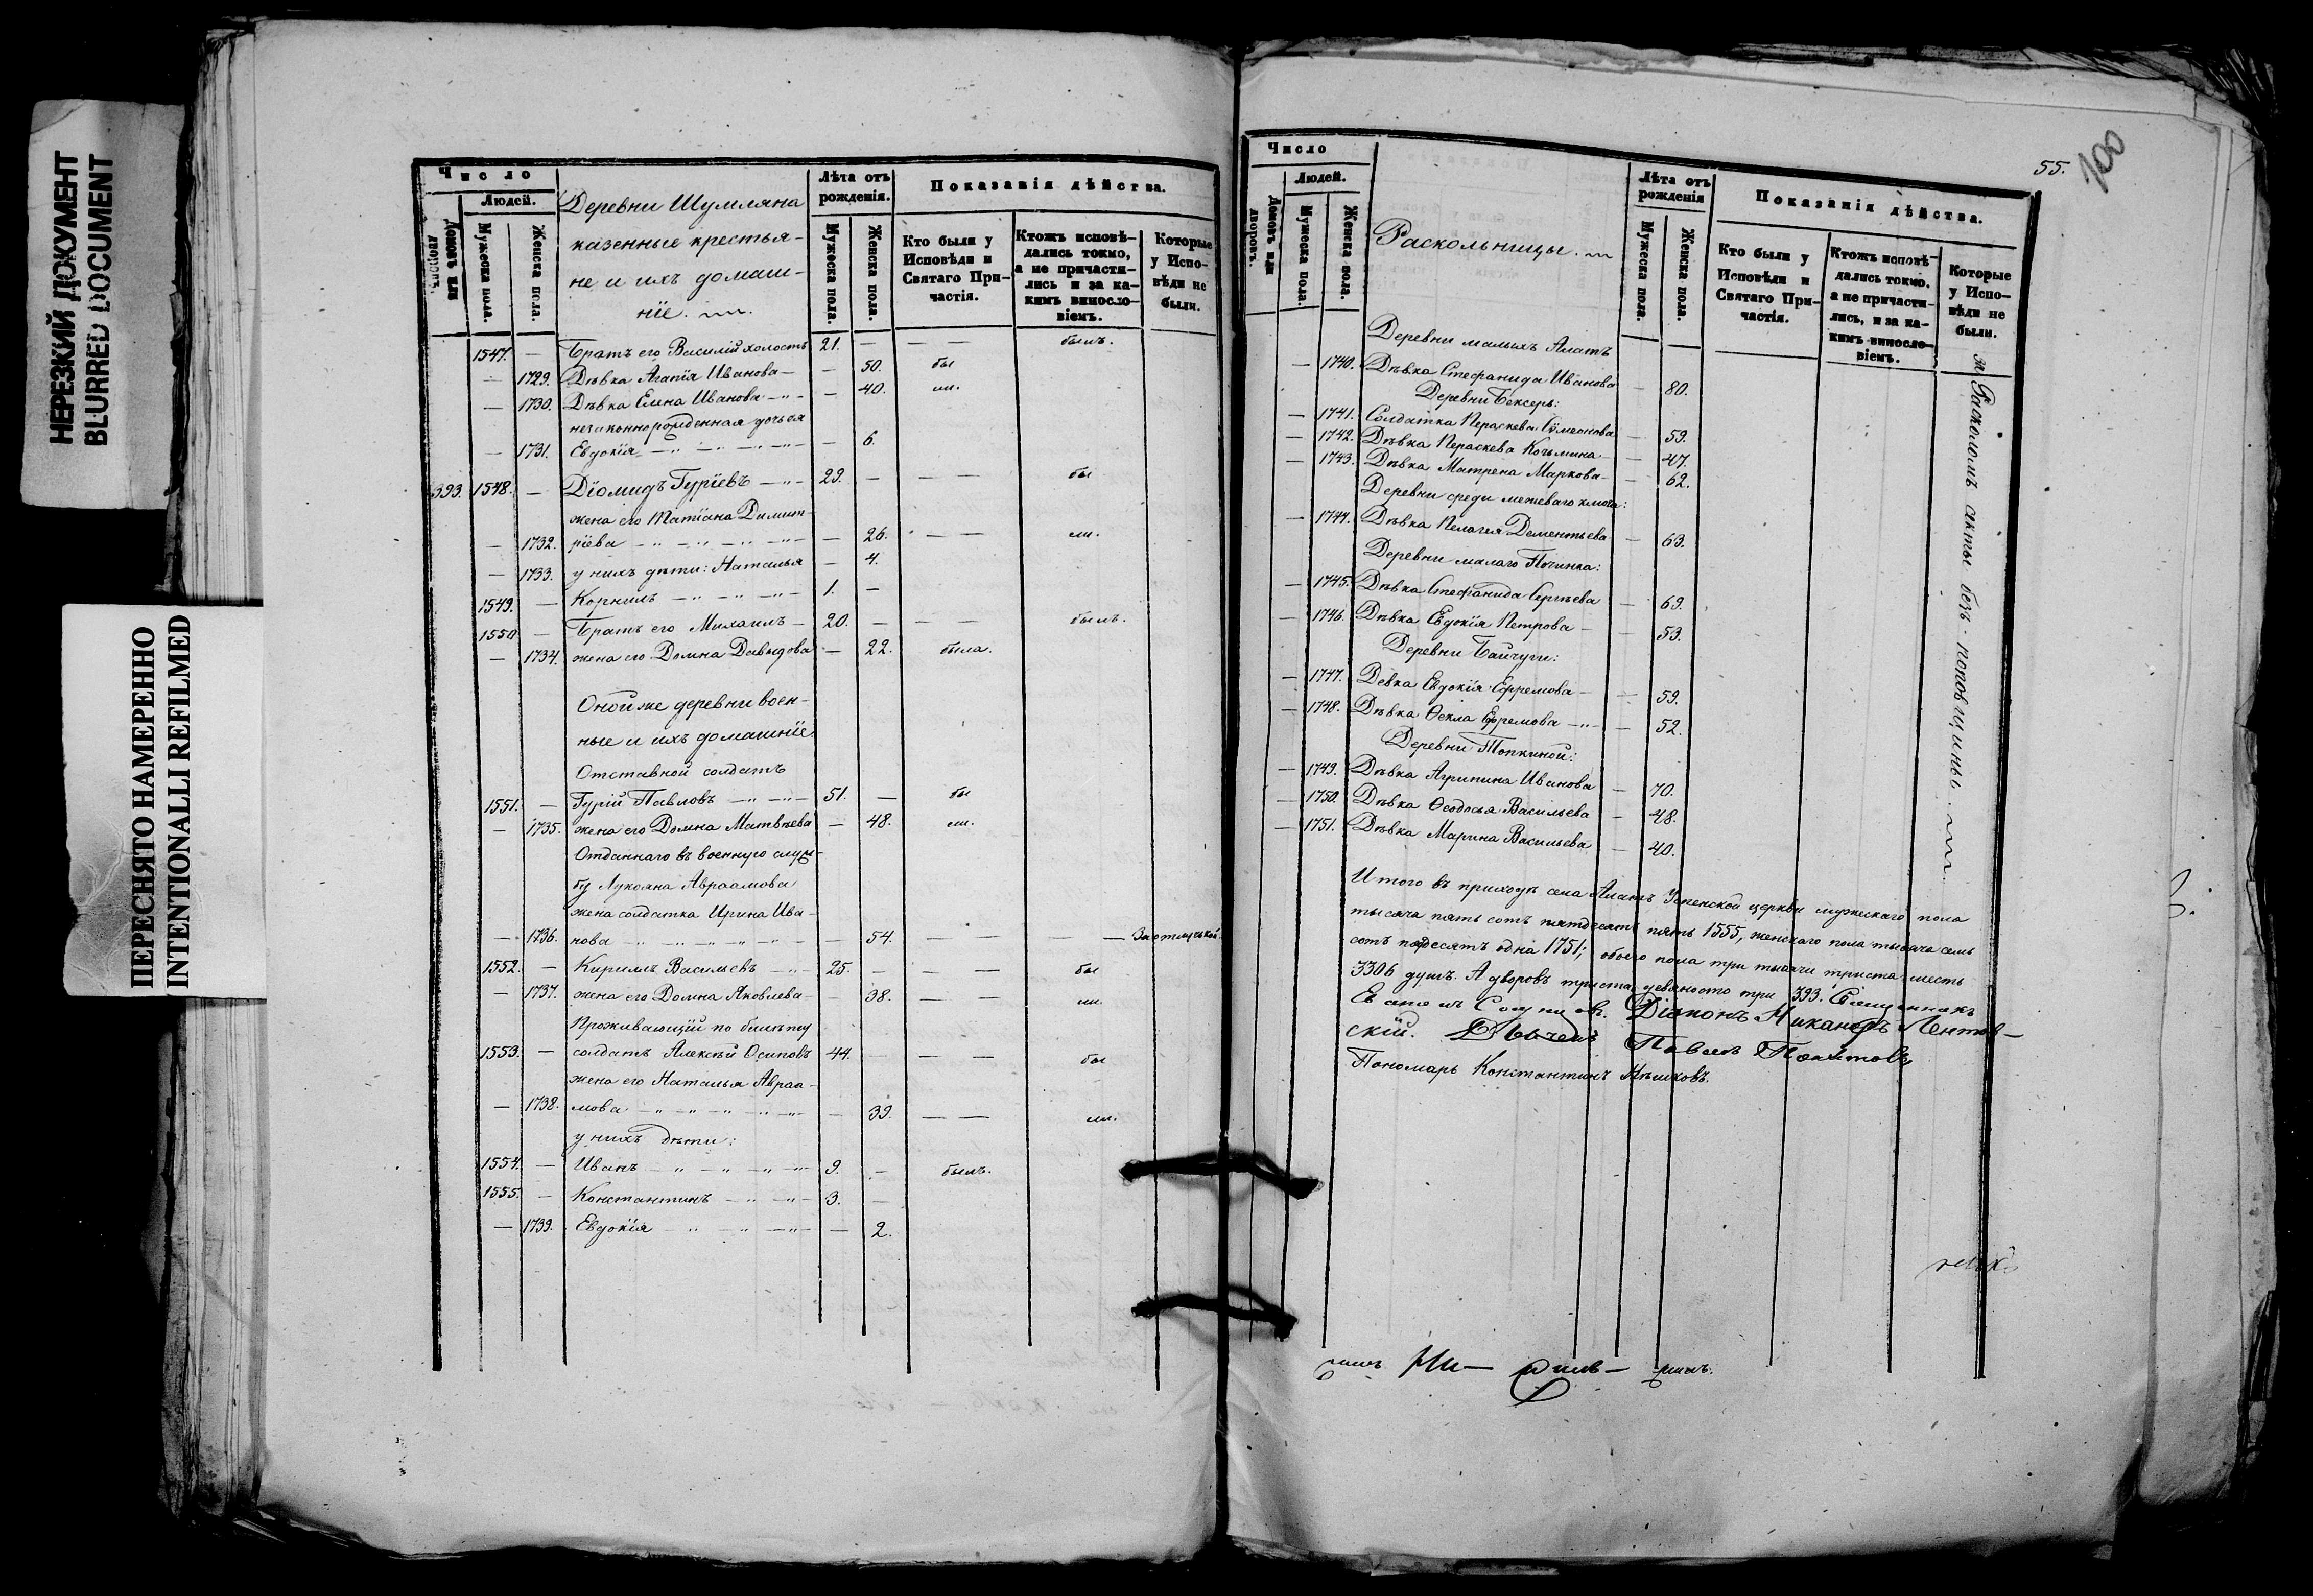 НЕРЕЗКИЙ ДОКУМЕНТ
BLURRED DOCUMENT
ПЕРЕСНЯТО НАМЕРЕННО
INTENTIONALLI REFILMED
Число
Людей.
Домовъ или дворовъ.
Мужеска пола.
Женска пола.
Деревни Шумляна
казенные крестья-
не и ихъ домаш-
нiе.
Лѣта отъ рожденiя.
Мужеска пола.
Женска пола.
Показанiя дѣйства.
Кто были у Исповѣди и Святаго При-частiя.
Ктожъ исповѣ-дались токмо, а не причасти-лись и за ка-кимъ винословiемъ.
Которые у Испо-вѣди не были.
1547. — Братъ его Василiй холостъ 21. — — — былъ.
— 1729. Дѣвка Агапiя Иванова — — 50. бы
— 1730. Дѣвка Елена Иванова — — 40. ли.
незаконнорожденная дочь ея
— 1731. Евдокiя — — 6.
393. 1548. — Дiомидъ Гурiевъ — 29. — — — бы
жена его Татiана Димит-
— 1732. рiева — — 26. — — ли.
— 1733. у нихъ дѣти: Наталья — 4.
1549. — Корнилъ — 1. —
1550. — Братъ его Михаилъ — 20. — — — былъ.
— 1734. жена его Домна Давыдова — 22. была.
Оной же деревни воен-
ные и ихъ домашнiе
Отставной солдатъ
1551. — Гурiй Павловъ — 51. — бы
— 1735. жена его Домна Матвѣева — 48. ли.
Отданнаго въ военную служ-
бу Лукояна Авраамова
жена солдатка Ирина Ива-
— 1736. нова — — 54. — — — За отлучкой.
1552. — Кирилъ Васильевъ — 25. — — — бы
— 1737. жена его Домна Яковлева — 38. — — ли.
Проживающiй по билету
1553. — солдатъ Алексѣй Осиповъ 44. — — — бы
жена его Наталья Авраа-
— 1738. мова — — 39. — — ли.
у нихъ дѣти:
1554. — Иванъ — 9. — былъ.
1555. — Константинъ — 3. —
— 1739. Евдокiя — — 2.
55.
100
Число
Людей.
Домовъ или дворовъ.
Мужеска пола.
Женска пола.
Раскольницы.
Лѣта отъ рожденiя
Мужеска пола.
Женска пола.
Показанiя дѣйства.
Кто были у Исповѣди и Святаго При-частiя.
Ктожъ исповѣ-дались токмо, а не причасти-лись, и за ка-кимъ винословiемъ.
Которые у Испо-вѣди не были.
За Расколомъ секты безъ-поповщины.
Деревни малыхъ Алатъ
— 1740. Дѣвка Стефанида Иванова — 80.
Деревни Бексерь:
— 1741. Солдатка Параскева Сѵмеонова — 59.
— 1742. Дѣвка Параскева Козьмина — 47.
— 1743. Дѣвка Матрена Маркова — 62.
Деревни среди межеваго ключа:
— 1744. Дѣвка Пелагея Дементьева — 63.
Деревни малаго Починка:
— 1745. Дѣвка Стефанида Сергѣева — 69.
— 1746. Дѣвка Евдокiя Петрова — 53.
Деревни Байчуги:
— 1747. Девка Евдокiя Ефремова — 59.
— 1748. Дѣвка Ѳекла Ефремова — 52.
Деревни Топкиной:
— 1749. Дѣвка Агрипина Иванова — 70.
— 1750. Дѣвка Ѳеодосья Васильева — 48.
— 1751. Дѣвка Марина Васильева — 40.
Итого въ приходѣ села Алатъ Успенской церкви мужскаго пола
тысяча пять сотъ пятдесятъ пять 1555, женскаго пола тысяча семь
сотъ пядесятъ одна 1751; обоего пола три тысячи триста шесть
3306 душъ. А дворовъ триста девяносто три 393. Священникъ
Дiаконъ Никаноръ Лентов-
скiй. Павелъ
Пономарь Константинъ